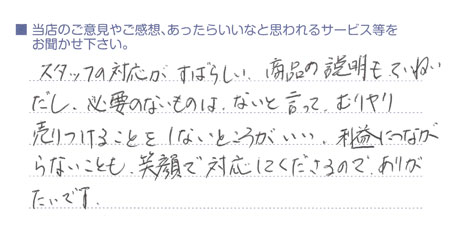 ■ 当店のご意見やご感想、あったらいいなと思われるサービス等を
お聞かせ下さい。
スタッフの対応がすばらしい。商品の説明もていねい
だし、必要のないものは、ないと言って、むりやり
売りつけることをしないところがいい。利益につなが
らないことも、笑顔で対応してくださるので、ありが
たいです。